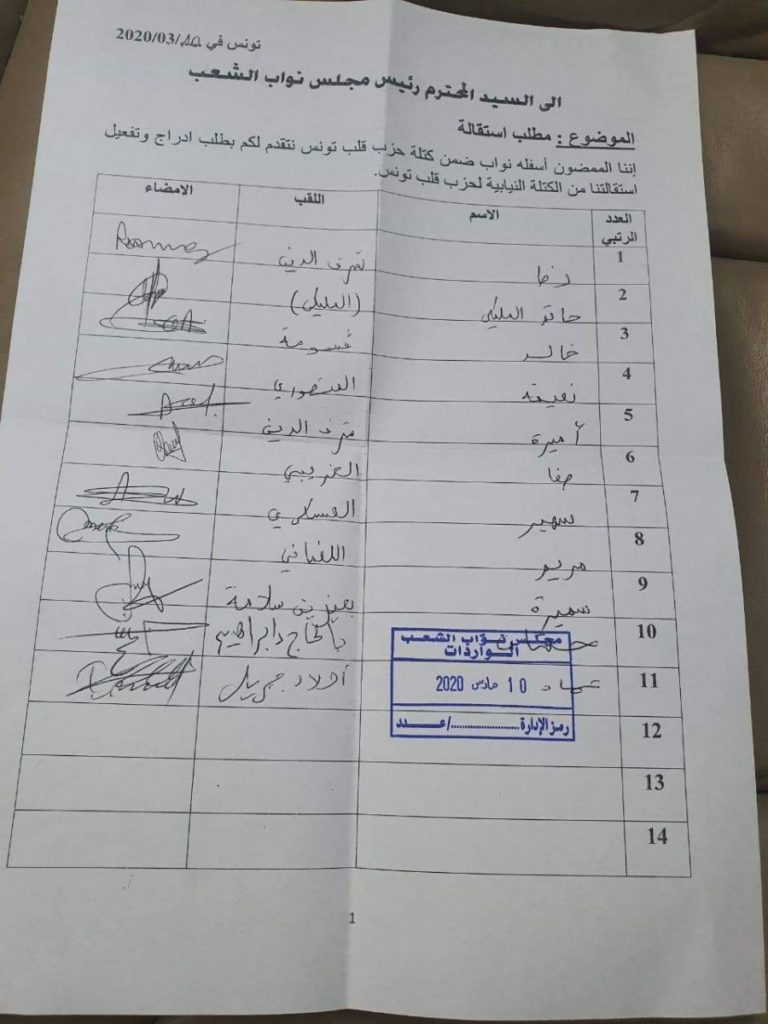 تونس في 10/03/2020
الى السيد المحترم رئيس مجلس نواب الشعب
الموضوع : مطلب استقالة
إننا الممضون أسفله نواب ضمن كتلة حزب قلب تونس نتقدم لكم بطلب ادراج وتفعيل
استقالتنا من الكتلة النيابية لحزب قلب تونس.
العدد الرتبي الاسم اللقب الامضاء
1 رضا شرف الدين
2 حاتم المليكي (المليكي)
3 خالد قسومة
4 نعيمة المنصوري
5 أميرة شرف الدين
6 صفا الغريبي
7 سهير العسكري
8 مريم اللغماني
9 سميرة بعزيز بن سلامة
10 بالحاج ابراهيم
11 عماد أولاد جبريل
12
13
14
مجلس نواب الشعب
الواردات
10 مارس 2020
رمز الإدارة ............/عـــدد
1